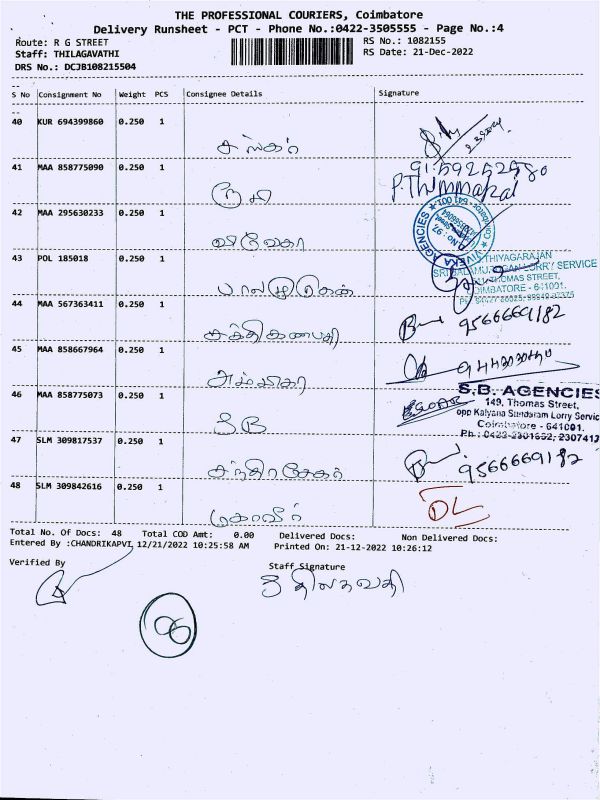 THE PROFESSIONAL COURIERS, Coimbatore
Delivery Runsheet - PCT - Phone No.:0422-3505555 - Page No.:4
Route: R G STREET RS No.: 1082155
Staff: THILAGAVATHI RS Date: 21-Dec-2022
DRS No.: DCJB108215504
S No Consignment No Weight PCS Consignee Details Signature
40 KUR 694399860 0.250 1
41 MAA 858775090 0.250 1
ரூபி P.Thimmarai
42 MAA 295630233 0.250 1
விவேகா VIVEKA AGENCIES
43 POL 185018 0.250 1 S.THIYAGARAJAN
பாலமுருகன் LORRY SERVICE
THOMAS STREET,
COIMBATORE - 641001.
44 MAA 567363411 0.250 1 9566669182
சக்திகணபதி
45 MAA 858667964 0.250 1
அம்பிகா
46 MAA 858775073 0.250 1 S.B. AGENCIES
149, Thomas Street,
opp Kalyana Sundaram Lorry Servic
Coimbatore - 641001.
SB Ph : 0422-2301652, 2307413
47 SLM 309817537 0.250 1 9566669182
சந்திரசேகர்
48 SLM 309842616 0.250 1 DL
மகாவீர்
Total No. Of Docs: 48 Total COD Amt: 0.00 Delivered Docs: Non Delivered Docs:
Entered By :CHANDRIKAPVT, 12/21/2022 10:25:58 AM Printed On: 21-12-2022 10:26:12
Verified By Staff Signature
திலகவதி
06